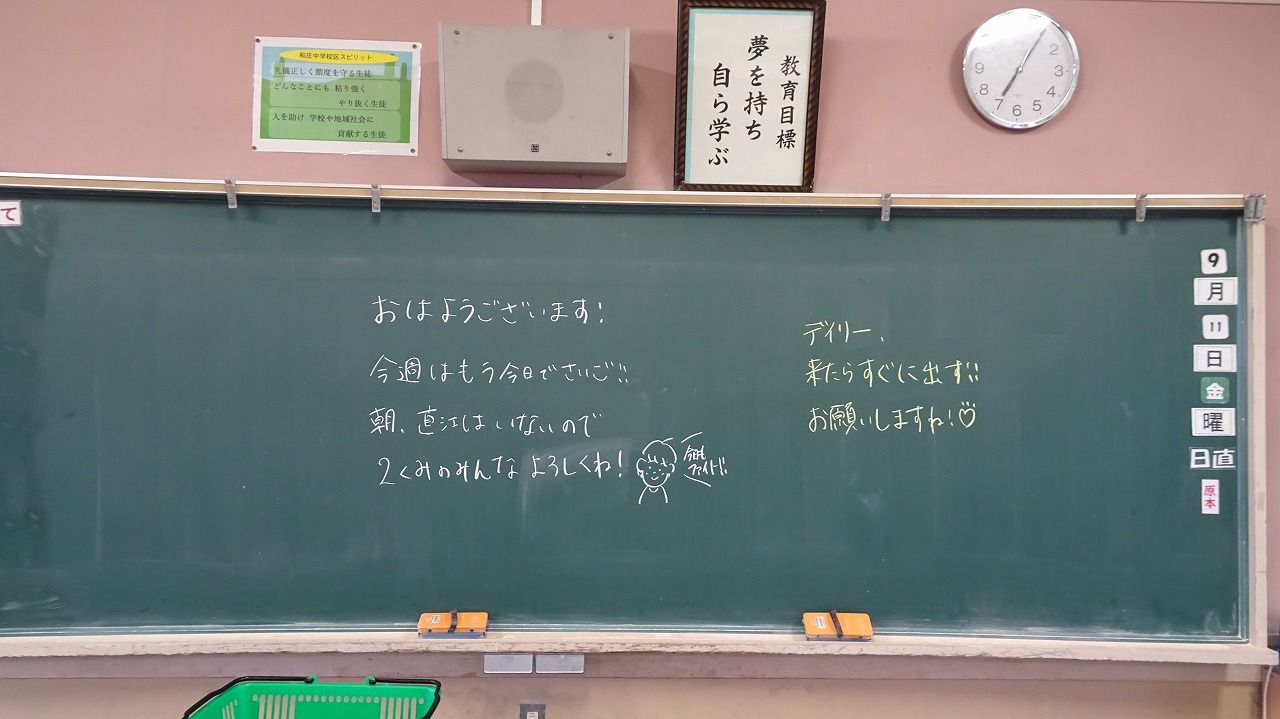 和庄中学校区スピリット
礼儀正しく節度を守る生徒
どんなことにも 粘り強く
やり抜く生徒
人を助け 学校や地域社会に
貢献する生徒
教育目標
夢を持ち
自ら学ぶ
12
1
2
3
4
5
6
7
8
9
10
11
て
おはようございます!
今週はもう今日でさいご!!
朝、直江はいないので
2くみのみんなよろしくね!
今日も
ファイト!!
デイリー、
来たらすぐに出す!!
お願いしますね!♡
9
月
11
日
金
曜
日直
原本